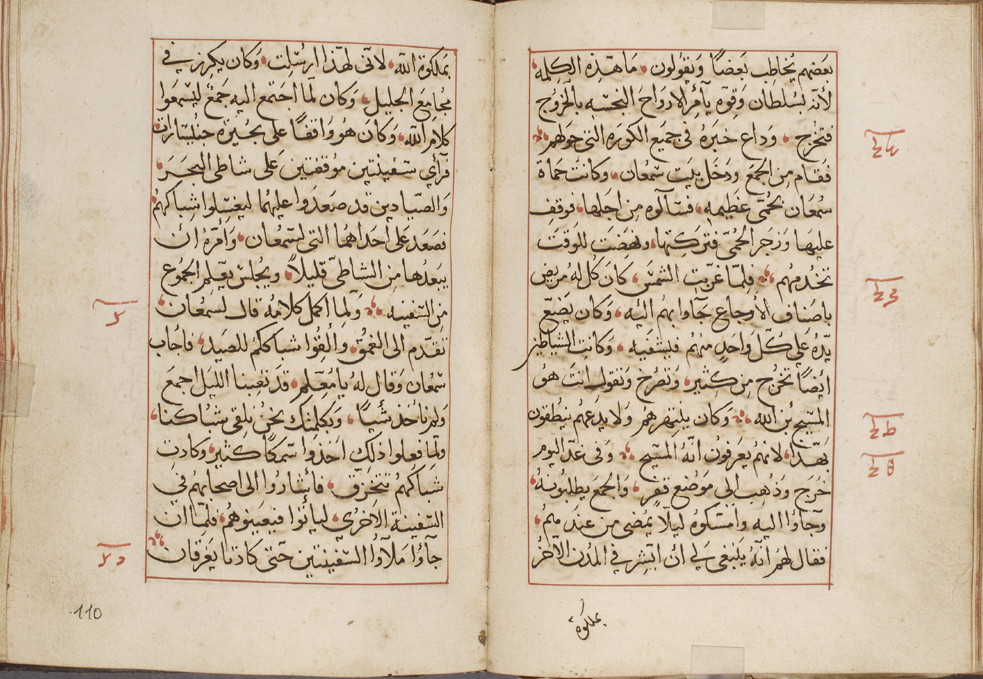 بعضهم يخاطب بعضًا ويقولون ما هذه الكلمه
لانه بسلطان وقوه يأمر الارواح النجسه بالخروج
فتخرج وداع خبره في جميع الكوره التي حولهم
فقام من الجمع ودخل بيت سمعان وكانت حماة
سمعان بحمى عظيمه فسآلوه من اجلها فوقف
عليها وزجر الحمى فتركتها ونهضت للوقت
تخدمهم فلما غربت الشمس كان كل له مريض
باصناف الأوجاع جآوا بهم اليه وكان يضع
يده على كل واحد منهم فيشفيه وكانت الشياطين
ايضًا تخرج من كثير وتصرخ وتقول انت هو
المسيح بن الله وكان ينهرهم ولا يدعهم ينطقون
بهذا لانهم يعرفون انه المسيح وفي غد اليوم
خرج وذهب الى موضع قفر والجمع يطلبونه
وجآوا اليه وامسكوه ليلا يمضي من عندهم
فقال لهم انه ينبغي لي ان ابشر في المدن الآخر
بملكوة
بملكوة الله لاني لهذا ارسلت وكان يكرز في
مجامع الجليل وكان لما اجتمع اليه جمع ليسمعوا
كلام الله وكان هو واقفًا على بحيرة جنيسارات
فرأي سفينتين موقفتين على شاطي البحر
والصيادين قد صعدوا عليهما ليغسلوا شباكهم
فصعد على احداهما التي لسمعان وأمره ان
يبعدها من الشاطي قليلاً وجلس يعلم الجموع
من السفينه ولما اكمل كلامه قال لسمعان
تقدم الى الغمق وألقوا شباككم للصيد فاجاب
سمعان وقال له يا معلم قد تعبنا الليل اجمع
ولم نأخد شيا وبكلمتك نحن نلقي شباكنا
ولما فعلوا ذلك اخدوا سمكًا كثير وكادت
شباكهم تتخرق فأشاروا الى اصحابهم في
السفينة الاخرى ليأتوا فيعينوهم فلما ان
جآوا ملآوا السفينتين حتى كادتا يغرقان
110